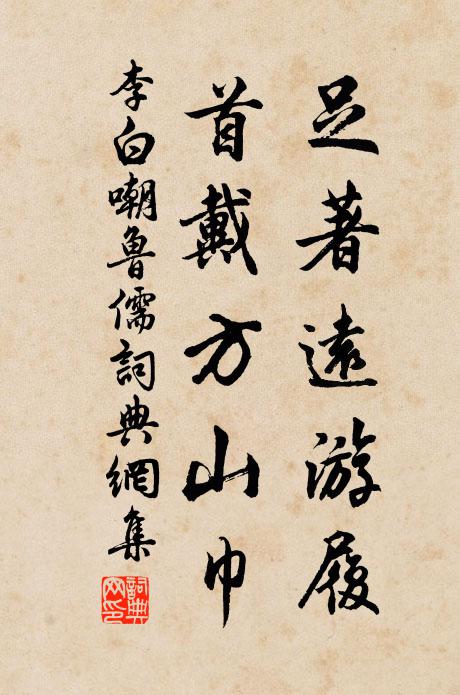 足著遠游履
首戴方山巾
李白嘲魯儒詞典網集
詞典网印